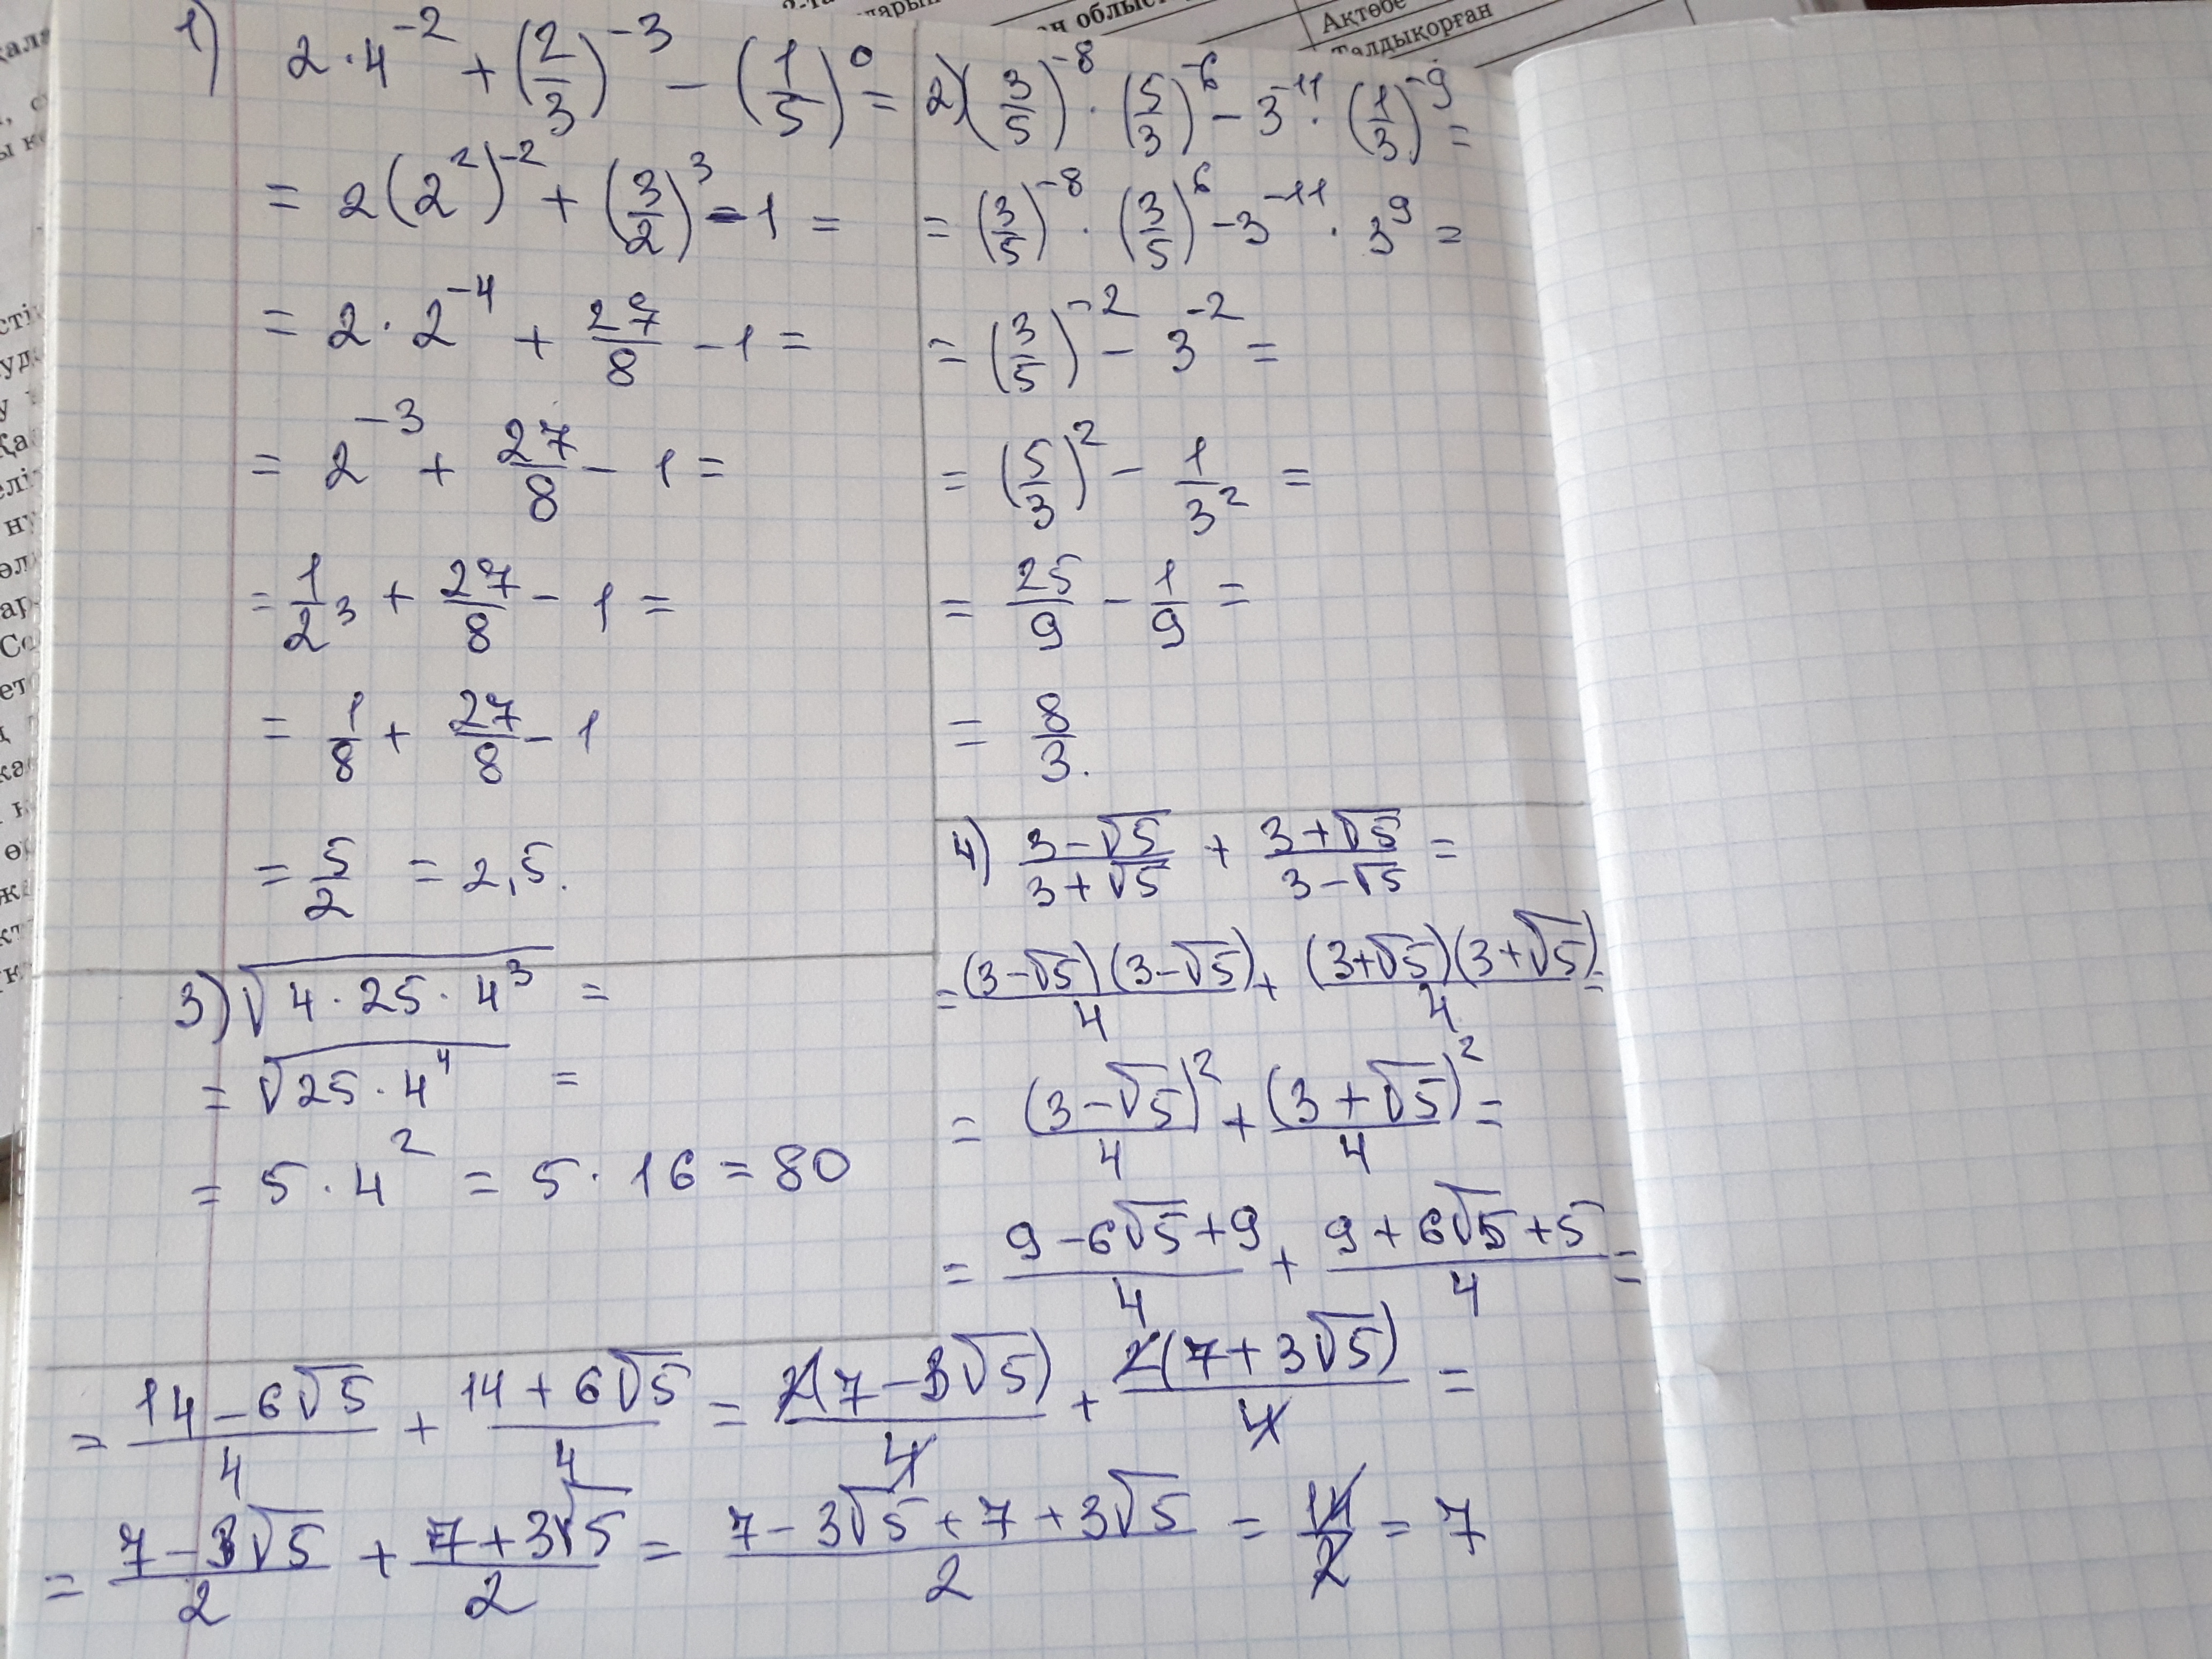 облыс
Ақтөбе
Талдықорған
1) 2·4^{-2} + (2/3)^{-3} - (1/5)^0 =
= 2(2^2)^{-2} + (3/2)^3 - 1 =
= 2·2^{-4} + 27/8 - 1 =
= 2^{-3} + 27/8 - 1 =
= 1/2^3 + 27/8 - 1 =
= 1/8 + 27/8 - 1
= 5/2 = 2,5.
2) (3/5)^{-8} · (5/3)^{-6} - 3^{-11} · (1/3)^{-9} =
= (3/5)^{-8} · (3/5)^6 - 3^{-11} · 3^9 =
= (3/5)^{-2} - 3^{-2} =
= (5/3)^2 - 1/3^2 =
= 25/9 - 1/9 =
= 8/3.
3) √(4·25·4^3) =
= √(25·4^4) =
= 5·4^2 = 5·16 = 80
4) (3-√5)/(3+√5) + (3+√5)/(3-√5) =
= (3-√5)(3-√5)/4 + (3+√5)(3+√5)/4 =
= (3-√5)^2/4 + (3+√5)^2/4 =
= (9-6√5+9)/4 + (9+6√5+5)/4 =
= (14-6√5)/4 + (14+6√5)/4 = 2(7-3√5)/4 + 2(7+3√5)/4 =
= (7-3√5)/2 + (7+3√5)/2 = (7-3√5+7+3√5)/2 = 14/2 = 7